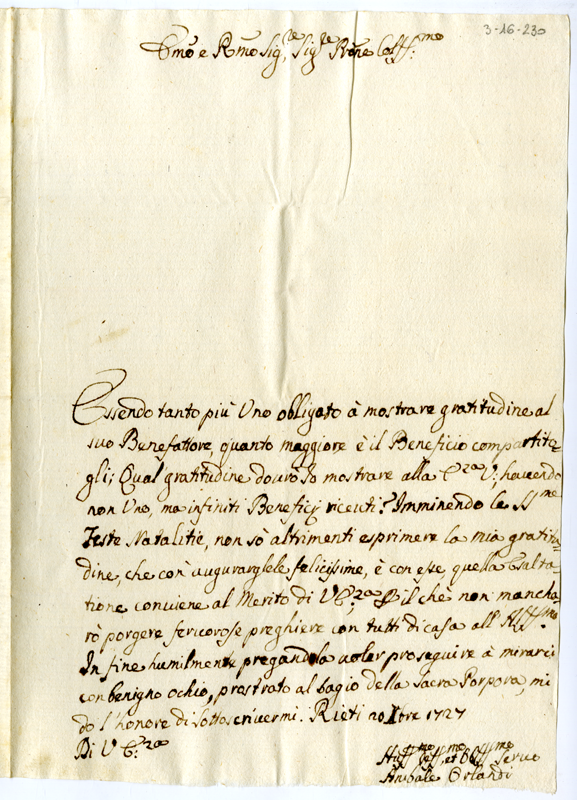 3-16-230
Em̃o e Rm̃o Sig.re Sig.re Pr̃one Col.mo
Essendo tanto più Uno obligato à mostrare gratitudine al
suo Benefattore, quanto maggiore è il Beneficio compartito-
gli; Qual gratitudine dourò Io mostrare alla E.za V: hauendo
non Uno, ma infiniti Beneficij riceuti? Imminendo le SS.me
Feste Natalitie, non sò altrimenti esprimere la mia gratitu-
dine, che con augurarglele felicissime, è con esse quella Esalta-
tione conviene al Merito di V E.za P il chè non mancha-
rò porgere feruorose preghiere con tutti di casa all'
In fine humilmente pregandola uoler proseguire à mirarci
con benigno ochio, prostrato al bagio della Sacra Porpora, mi
do l'honore di Sottoscriuermi. Rieti 20 Xbre 1727
Di V E.za
et Obl.mo Seruo
Anibale Orlandi